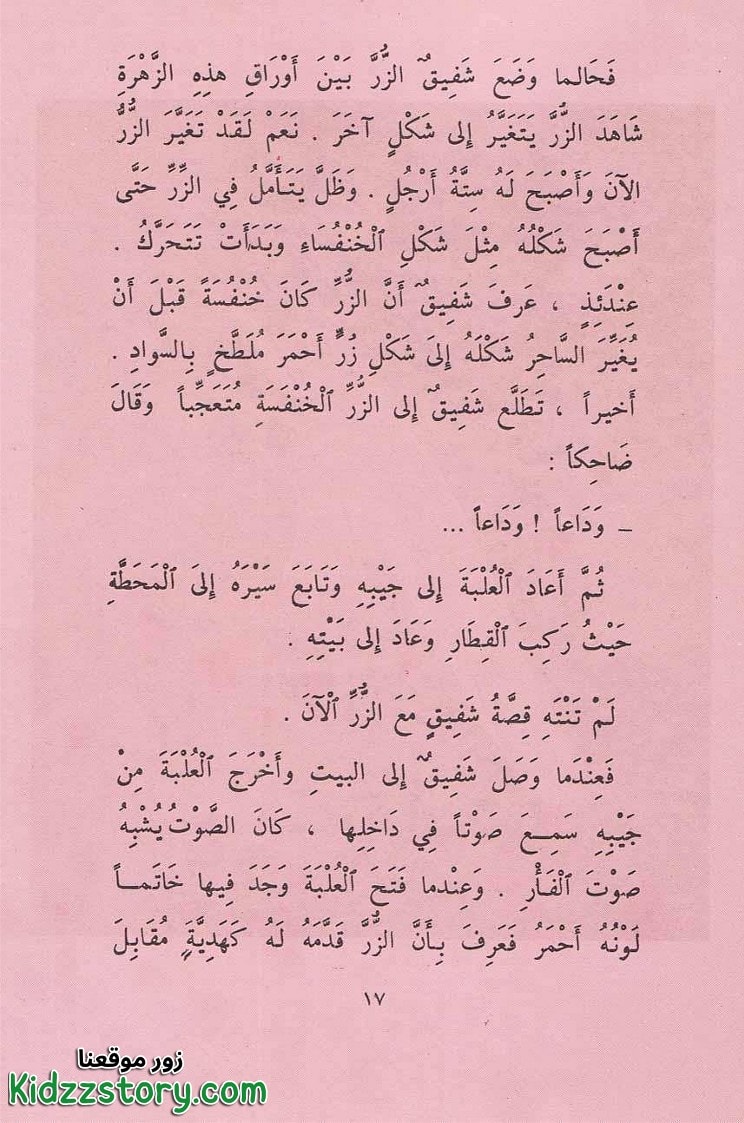 فَحَالما وَضَعَ شَفِيقٌ الزُّرَّ بَيْنَ أَوْرَاقِ هذِهِ الزَّهْرَةِ
شَاهَدَ الزُّرَّ يَتَغَيَّرُ إِلى شَكْلٍ آخَرَ . نَعَمْ لَقَدْ تَغَيَّرَ الزُّرُّ
الآنَ وَأَصْبَحَ لَهُ سِتَّةُ أَرْجُلٍ . وَظَلَّ يَتَأَمَّلُ فِي الزِّرِّ حَتَّى
أَصْبَحَ شَكْلُهُ مِثْلَ شَكْلِ ٱلْخُنْفُسَاءِ وَبَدَأَتْ تَتَحَرَّكُ .
عِنْدَئِذٍ ، عَرِفَ شَفِيقٌ أَنَّ الزُّرِّ كَانَ خُنْفُسَةً قَبْلَ أَنْ
يُغَيِّرَ السَّاحِرُ شَكْلَهُ إِلىَ شَكْلِ زُرٍّ أَحْمَرَ مُلَطَّخٍ بِالسَّوادِ .
أَخيراً ، تَطَلَّع شَفِيقٌ إِلى الزُّرِّ ٱلْخُنْفَسَةِ مُتَعَجِّباً وَقَالَ
ضَاحِكاً :
ـ وَدَاعاً ! وَدَاعاً ...
ثُمَّ أَعَادَ ٱلْعُلْبَةَ إِلى جَيْبِهِ وَتَابَعَ سَيْرَهُ إِلىَ ٱلْمَحَطَّةِ
حَيْثُ رَكِبَ ٱلْقِطَارِ وَعَادَ إِلى بَيْتِهِ .
لَمْ تَنْتَهِ قِصَّةُ شَفِيقٍ مَعَ الزُّرِّ ٱلْآنَ .
فَعِنْدَما وَصَلَ شَفِيقٌ إِلى البيتِ وأَخْرَجَ ٱلْعُلْبَةَ مِنْ
جَيْبِهِ سَمِـعَ صَوْتاً فِي دَاخِلِها ، كَانَ الصَّوْتُ يُشْبِهُ
صَوْتَ ٱلْفَأْرِ . وَعِنْدما فَتَحَ ٱلْعُلْبَةَ وَجَدَ فِيها خَاتَمـاً
لَوْنُهُ أَحْمَرُ فَعَرِفَ بِأَنَّ الزُّرَّ قَدَّمَهُ لَهُ كَهَدِيَّةٍ مُقَابِلَ
١٧
زور موقعنا
Kidzzstory.com